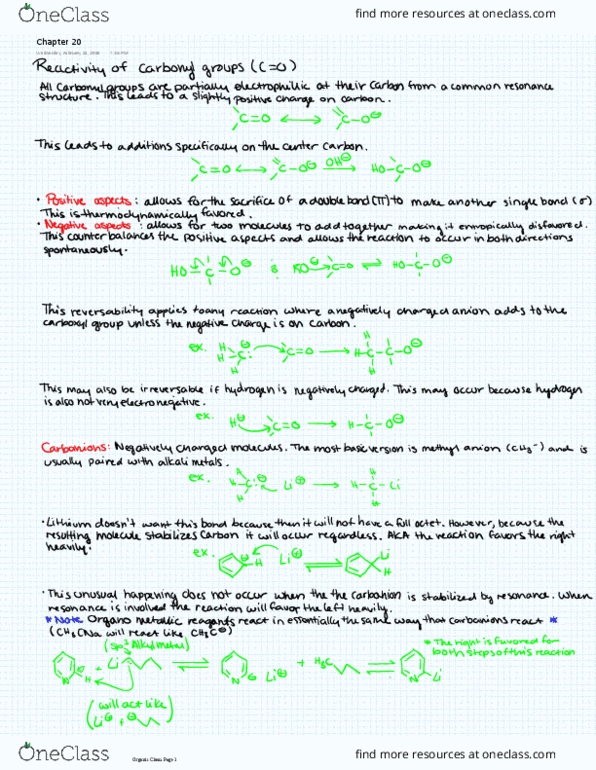 OneClass
find more resources at oneclass.com
Chapter 20
Reactivity of carbonyl groups (C=O)
All Carbonyl groups are partially electrophillic at their Carbon from a common resonance
structure. This leads to a slightly positive charge on carbon.
C=O C-O⊖
This leads to additions specifically on the center carbon.
C=O C-O⊖ OH⊖ HO-C-O⊖
• Positive aspects: allows for the sacrifice of a double bond (π) to make another single bond (σ)
This is thermodynamically favored.
• Negative aspects: allows for two molecules to add together making it entropically disfavored.
This counter balances the positive aspects and allows the reaction to occur in both directions
spontaneously.
HO-C-O⊖ C=O ⇌ HO-C-O⊖
This reversability applies to any reaction where a negatively charged anion adds to the
carboxyl group unless the negative charge is on Carbon.
ex. H H-C: H C=O → H-C-C-O⊖ H H
This may also be irreversable if hydrogen is negatively charged. This may occur because hydrogen
is also not very electronegative.
ex. H⊖ C=O → H-C-O⊖
Carbanions: Negatively charged molecules. The most basic version is methyl anion (CH₃⁻) and is
usually paired with alkali metals.
ex. H H-C:⊖ H Li⊕ → H-C-Li H
• Lithium doesn't want this bond because then it will not have a full octet. However, because the
resulting molecule stabilizes Carbon it will occur regardless. AKA the reaction favors the right
heavily.
ex. ⊖ H Li⊕ ⇌ Li H
• This unusual happening does not occur when the the carbonion is stabilized by resonance. When
resonance is involved the reaction will favor the left heavily.
* Note: Organo metallic reagents react in essentially the same way that carbonions react *
(CH₃CNa will react like CH₃C⊖)
(sp³ Alkyl metal)
* The right is favored for
both steps of this reaction
N H + Li ⇌ N ⊖ Li⊕ + H₃C ⇌ N Li
(will act like
Li⊕ + ⊖)
OneClass
Organic Chem Page 1
find more resources at oneclass.com